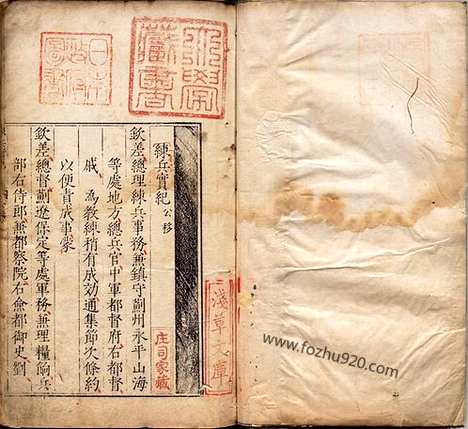 練兵實紀 公移
欽差總理練兵事務兼鎮守薊州永平山海
等處地方總兵官中軍都督府右都督
戚 為教練稍有成效通集節次條約
以便責成事蒙
欽差總督薊遼保定等處軍務兼理糧餉兵
部右侍郎兼都察院右僉都御史劉
淺草文庫
庄司家藏
www.fozhu920.com